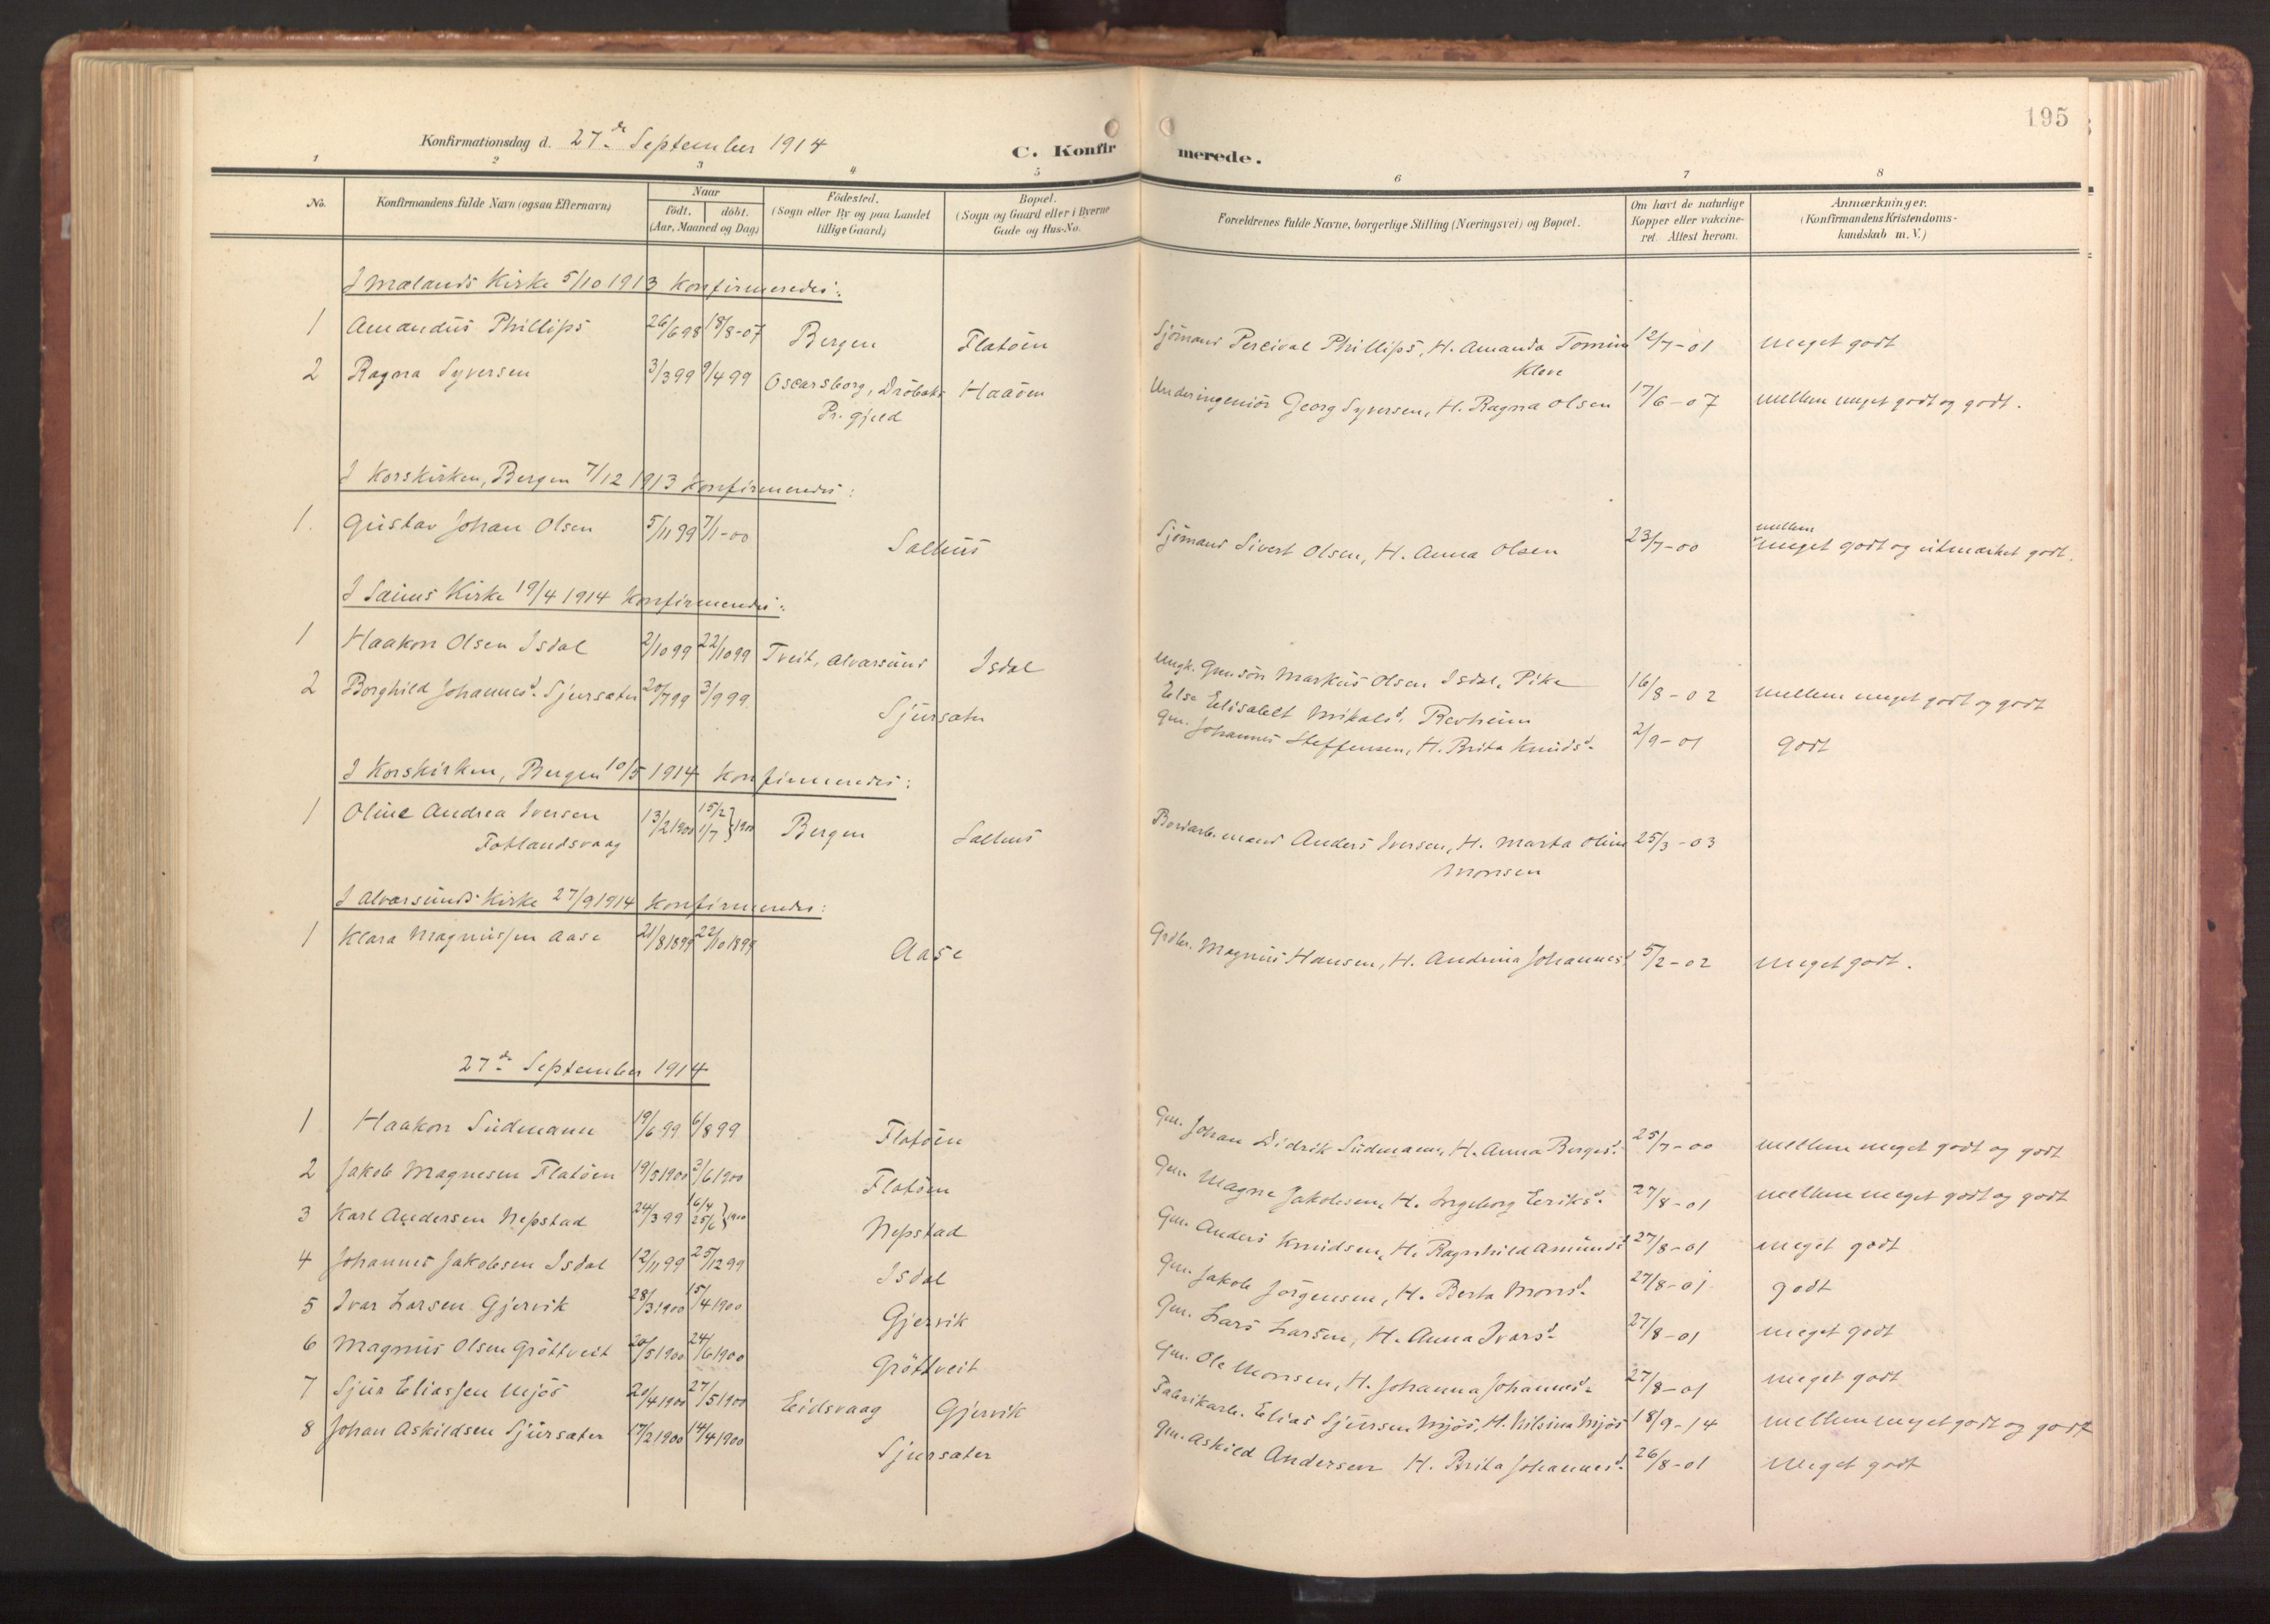 195
Konfirmationsdag d. 27de September 1914
C. Konfirmerede.
1 2 3 4 5 6 7 8
No.
Konfirmandens fulde Navn (ogsaa Efternavn)
Naar
født. døbt.
(Aar, Maaned og Dag)
Fødested.
(Sogn eller By og paa Landet
tillige Gaard)
Bopæl.
(Sogn og Gaard eller i Byerne
Gade og Hus-No.
Forældrenes fulde Navne, borgerlige Stilling (Næringsvei) og Bopæl.
Om havt de naturlige
Kopper eller vakcine-
ret. Attest herom.
Anmærkninger.
(Konfirmandens Kristendoms-
kundskab m. V.)
I Mælands Kirke 5/10 1913 konfirmeredes:
1 Amandus Phillips 26/6 98 18/8-07 Bergen Flatöen Sjömand Percival Phillips, H. Amanda Tomine 12/7-01 meget godt
Kleve
2 Ragna Syversen 3/3 99 9/4 99 Oscarsborg, Dröbaks Haaöen Underingeniör Georg Syversen, H. Ragna Olsen 17/6-07 mellem meget godt og godt.
Pr.gjeld
I Korskirken, Bergen 7/12 1913 konfirmeredes:
1. Gustav Johan Olsen 5/11 99 7/1-00 Salhus Sjömand Sivert Olsen, H. Anna Olsen 23/7-00 mellem meget godt og utmærket godt.
I Sæims Kirke 19/4 1914 konfirmeredes:
1 Haakon Olsen Isdal 2/10 99 22/10 99 Tveit, Alvarsund Isdal Ungk. Gmsön Markus Olsen Isdal, Pike 16/8-02 mellem meget godt og godt
Else Elisabet Mikalsd. Revheim
2 Borghild Johannesd. Sjursæter 20/7 99 3/9 99 Sjursæter Gm. Johannes Steffensen, H. Brita Knudsd. 2/9-01 godt
I Korskirken, Bergen 10/5 1914 konfirmeredes:
1 Oline Andrea Iversen 13/2 1900 15/2 1/7 } 1900 Bergen Salhus Bordarb.mand Anders Iversen, H. Marta Oline 25/3-03
Fotlandsvaag Monsen
I Alvarsunds Kirke 27/9 1914 konfirmeredes:
1 Klara Magnussen Aase 21/8 1899 22/10 1899 Aase Grdbr. Magnus Hansen, H. Andrina Johannesd. 5/2-02 meget godt.
27de September 1914
1 Haakon Südmann 19/6 99 6/8 99 Flatöen Gm. Johan Didrik Südmann, H. Anna Bergesd. 25/7-00 mellem meget godt og godt
2 Jakob Magnesen Flatöen 19/5 1900 3/6 1900 Flatöen Gm. Magne Jakobsen, H. Ingeborg Eriksd. 27/8-01 mellem meget godt og godt
3 Karl Andersen Nepstad 24/3 99 16/4 25/6 } 1900 Nepstad Gm. Anders Knudsen, H. Ragnhild Amundsd. 27/8-01 meget godt
4 Johannes Jakobsen Isdal 12/11 99 25/12 99 Isdal Gm. Jakob Jörgensen, H. Berta Monsd. 27/8-01 godt
5 Ivar Larsen Gjervik 28/3 1900 15/4 1900 Gjervik Gm. Lars Larsen, H. Anna Ivarsd. 27/8-01 meget godt
6 Magnus Olsen Gröttveit 20/5 1900 24/6 1900 Gröttveit Gm. Ole Monsen, H. Johanna Johannesd. 27/8-01 meget godt
7 Sjur Eliassen Mjös 20/4 1900 27/5 1900 Eidsvaag Gjervik Fabrikarb. Elias Sjursen Mjös, H. Nilsina Mjös 18/9-14 mellem meget godt og godt
8 Johan Askildsen Sjursæter 17/2 1900 14/4 1900 Sjursæter Gm. Askild Andersen H. Brita Johannesd. 26/8-01 meget godt